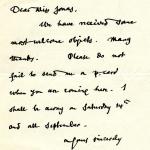 Dear Miss Jones,
We have received some
most welcome objects. Many
thanks. Please do not
fail to send me a p.card
when you are coming here. I
shall be away on Saturday 14th
and all September.
Yours sincerely